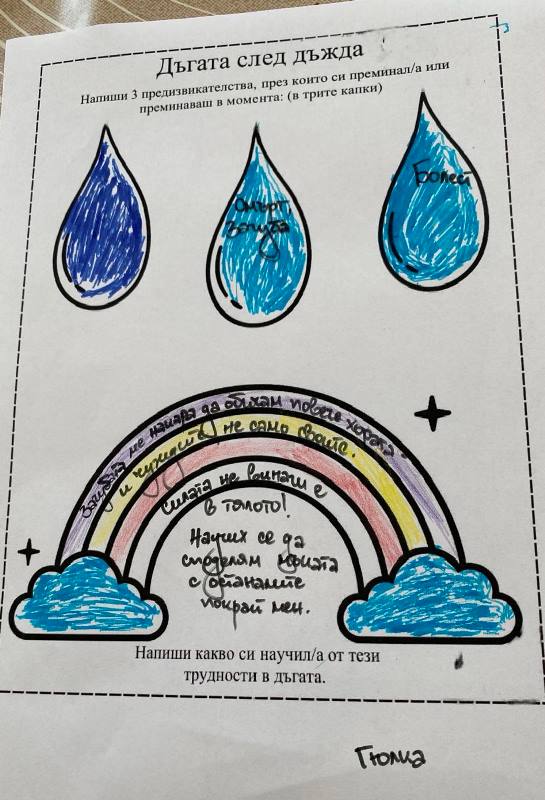 Дъгата след дъжда
Напиши 3 предизвикателства, през които си преминал/а или
преминаваш в момента: (в трите капки)
Смърт,
Загуба
Болест
Загубата ме накара да обичам повече хората
и чуждите, не само своите.
Силата не винаги е
в тялото!
Научих се да
споделям нещата
с останалите
покрай мен.
Напиши какво си научил/а от тези
трудности в дъгата.
Гюлка